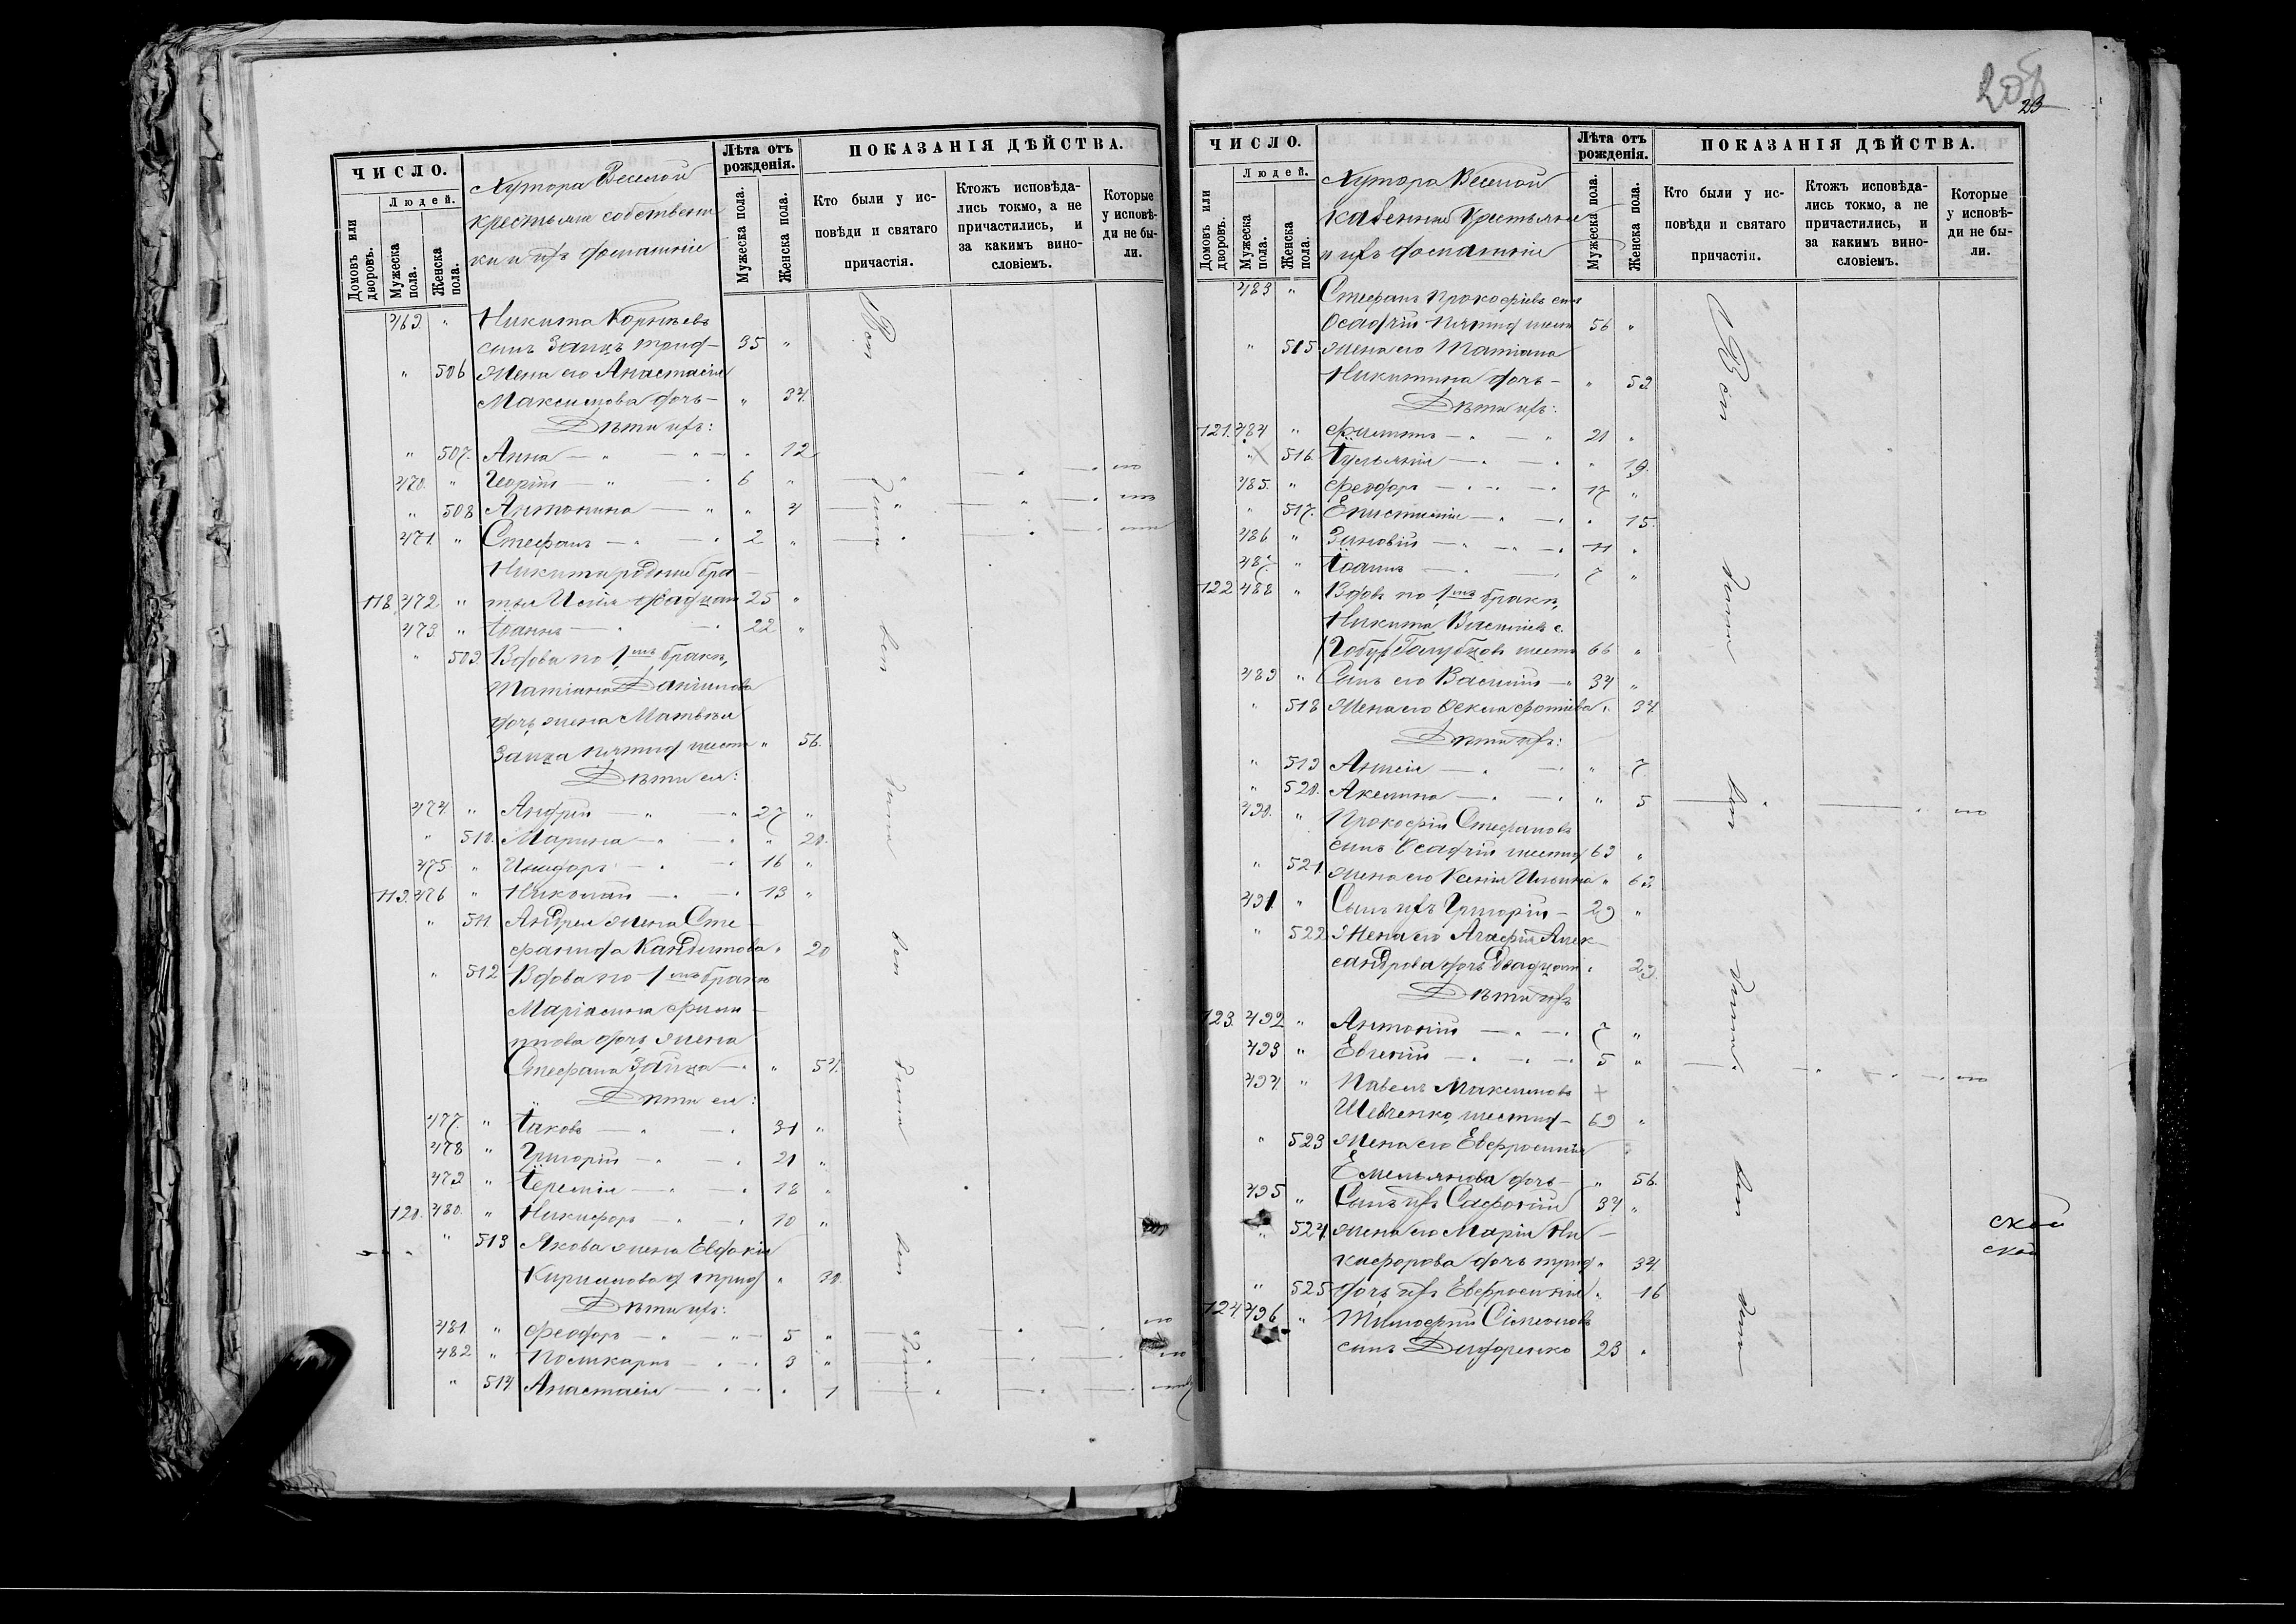 ЧИСЛО.
Людей.
Домовъ или дворовъ.
Мужеска пола.
Женска пола.
Хутора Веселой
крестьяне собствени
ки и ихъ домашніе
Лѣта отъ рожденія.
Мужеска пола.
Женска пола.
ПОКАЗАНІЯ ДѢЙСТВА.
Кто были у исповѣди и святаго причастія.
Ктожъ исповѣдались токмо, а не причастились, и за какимъ винословіемъ.
Которые у исповѣди не были.
469. " Никита Корнѣевъ
сынъ Заицъ трид— 35 "
" 506 Жена его Анастасія
Максимова дочь— " 34.
Дѣти ихъ:
" 507. Анна — " — " 12
470. " Георгій — " — 6 "
" 508 Антонина — " " 4
471. " Стефанъ — " — 2 "
Никита родные бра—
118. 472 " тья двадцат 25 "
473. " Іоаннъ — " — 22 "
" 509. Вдова по 1мъ бракѣ,
Татіана Данилова
дочь жена Матвѣя
Заица пятид шест " 56.
Дѣти ея:
474. " Андрей — " — 27 "
" 510. Марина — " — " 20.
475. " — " — 16 "
119. 476 " Николай — " — 13 "
" 511. Андрея жена Сте—
фанида Кандитова " 20
" 512 Вдова по 1мъ бракѣ
Маріамна Фили—
ппова дочь жена
Стефана Заица — " 54.
Дѣти ея:
477. " Іаковъ — " — 31 "
478 " Григорій — " — 21 "
479 " Іеремія — " — 18 "
120. 480. " Никифоръ — " — 10 "
" 513 Якова жена Евдокія
Кирилова д трид " 30.
Дѣти ихъ:
481. " Феодоръ — " — 5 "
482 " Поликарпъ — " — 3 "
" 514 Анастасія — " — " 1
23
ЧИСЛО.
Людей.
Домовъ или дворовъ.
Мужеска пола.
Женска пола.
Хутора Веселой
казенные крестьяне
и ихъ домашніе
Лѣта отъ рожденія.
Мужеска пола.
Женска пола.
ПОКАЗАНІЯ ДѢЙСТВА.
Кто были у исповѣди и святаго причастія.
Ктожъ исповѣдались токмо, а не причастились, и за какимъ винословіемъ.
Которые у исповѣди не были.
483 " Стефанъ Прокофіевъ сынъ
Осадчій пятид шест 56 "
" 515 Жена его Татіана
Никитина дочь— " 52
Дѣти ихъ:
121. 484 " Филиппъ — " 21 "
" 516. Іуліанія — " — " 19.
485. " Феодоръ — " — 17 "
" 517. Епистимія — " — " 15.
486 " Зиновій — " — 11 "
487. " Іоаннъ — " — 7 "
122 488 " Вдовъ по 1мъ бракѣ,
Никита Василіевъ с.
Голубцовъ шест 66 "
489 " Сынъ его Василій — 34 "
" 518 Жена его Фотіева " 34.
Дѣти ихъ:
" 519 — " — " 7
" 520. Акелина — " — " 5
490. " Прокофій Стефановъ
сынъ Осадчій шестид 63 "
" 521 Жена его Ксенія Ильина " 62
491. " Сынъ ихъ Григорій — 29 "
" 522 Жена его Агафія Алек—
сандрова дочь двадцат " 29.
Дѣти ихъ
123. 492 " Антоній — " — 7 "
493 " Евгеній — " — 5 "
494. " Павелъ Максимовъ +
Шевченко, шестид— 69 "
" 523 Жена его Евфросинія
Емельянова дочь— " 56.
495 " Сынъ ихъ Сафоній 34 "
" 524. Жена его Марія Ни—
кифорова дочь трид " 34
" 525 дочь ихъ Евфросинія " 16
124. 496 " Тимофей Сімеоновъ
сынъ 23 "